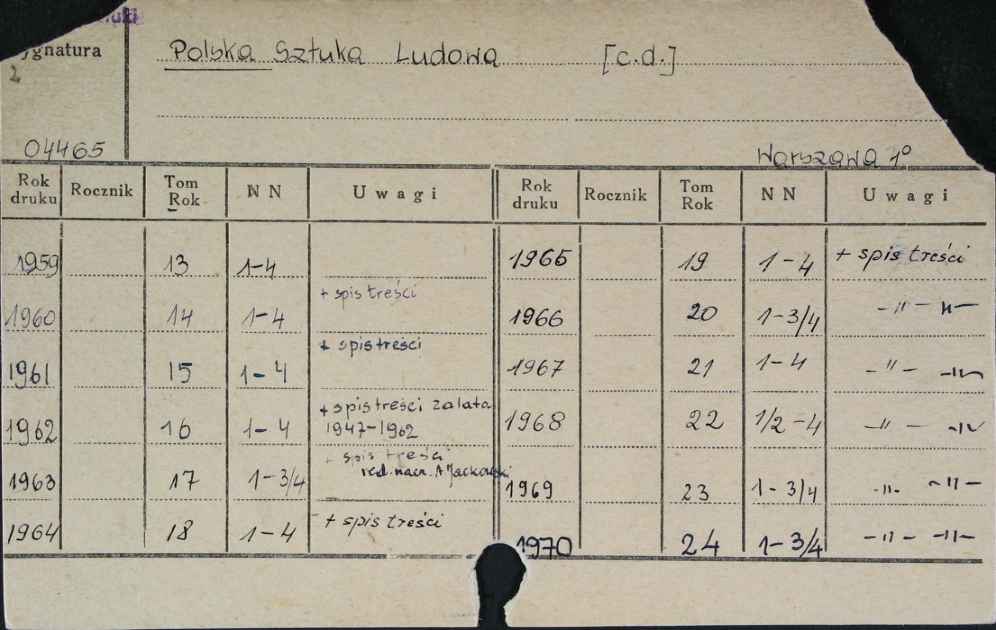 Sygnatura
2
04465
Polska Sztuka Ludowa [c.d.]
Warszawa 1°
Rok druku Rocznik Tom Rok NN Uwagi Rok druku Rocznik Tom Rok NN Uwagi
1959 13 1-4
1960 14 1-4 + spis treści
1961 15 1-4 + spis treści
1962 16 1-4 + spis treści za lata 1947-1962
1963 17 1-3/4 + spis treści red. nacz. A Jackowski
1964 18 1-4 + spis treści
1965 19 1-4 + spis treści
1966 20 1-3/4 -"- -"-
1967 21 1-4 -"- -"-
1968 22 1/2-4 -"- -"-
1969 23 1-3/4 -"- -"-
1970 24 1-3/4 -"- -"-